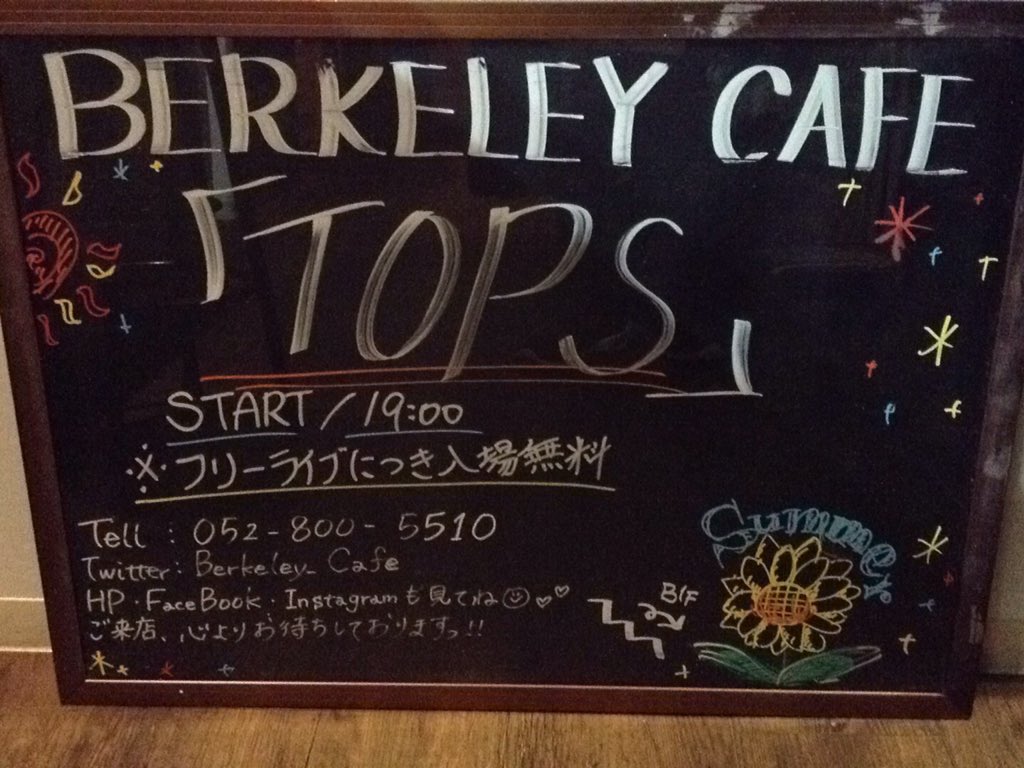 BERKELEY CAFE
「TOPS」
START/19:00
※フリーライブにつき入場無料
Tell : 052-800-5510
Twitter: Berkeley_Cafe
HP・FaceBook・Instagramも見てね
ご来店、心よりお待ちしておりますっ!!
Summer
B1F